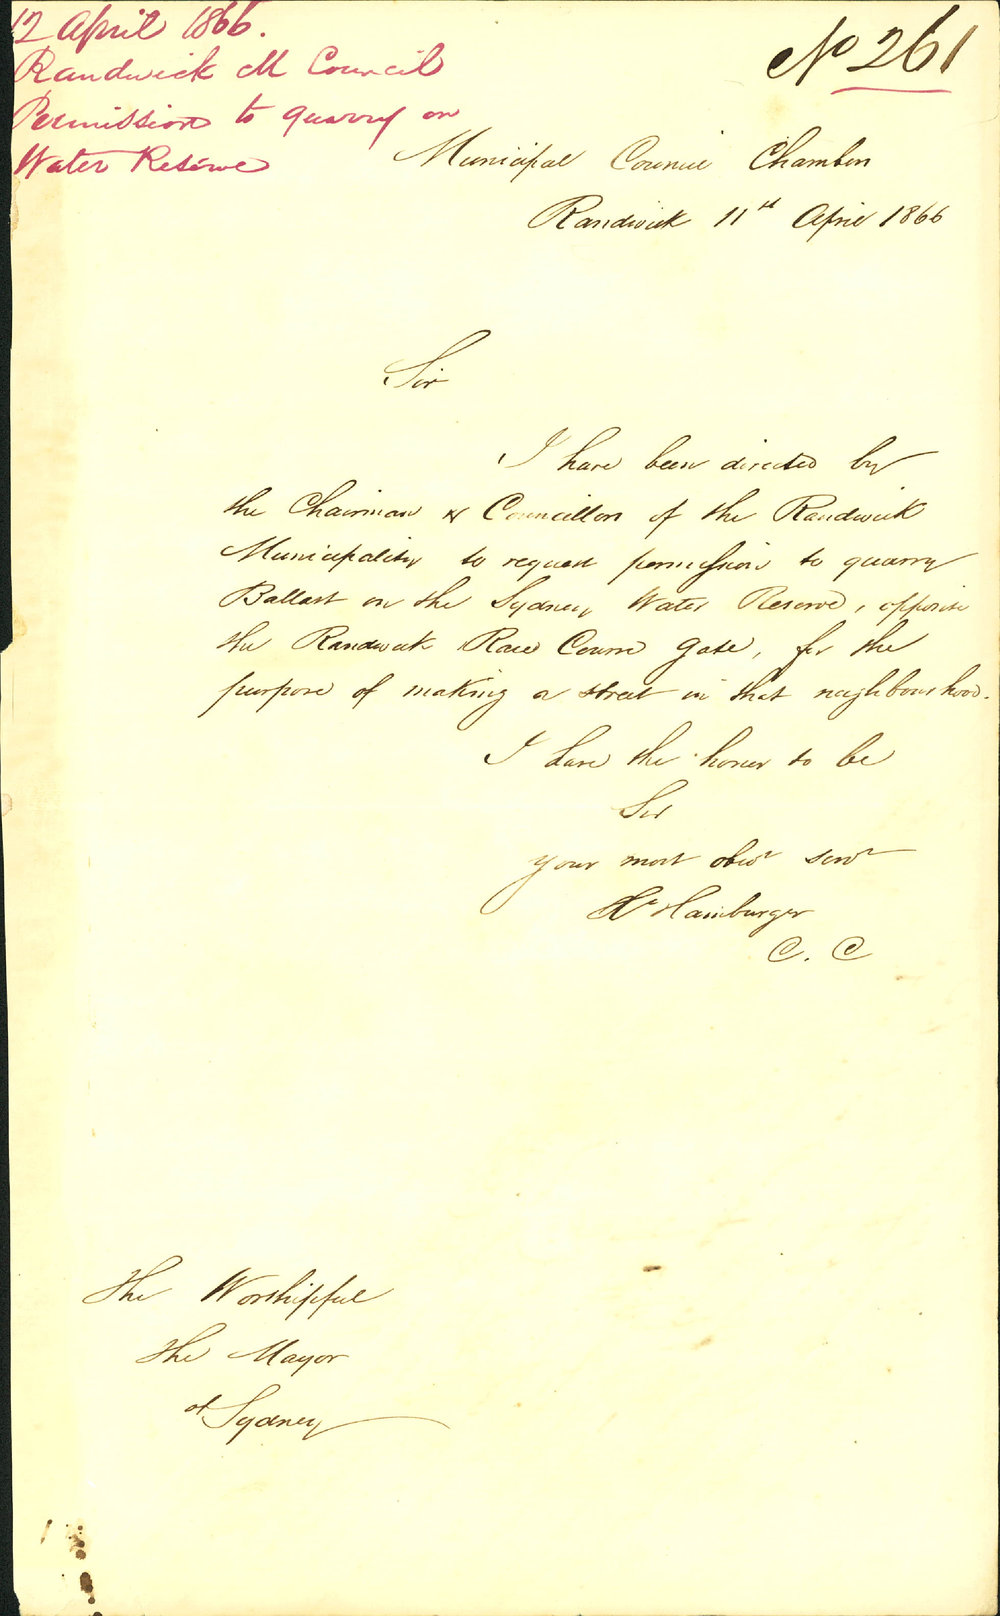 12 April 1866.
Randwick M Council
Permission to quarry on
Water Reserve
No 261
Municipal Council Chambers
Randwick 11th April 1866
Sir
I have been directed by
the Chairman & Councillors of the Randwick
Municipality to request permission to quarry
Ballast on the Sydney Water Reserve, opposite
the Randwick Race Course Gate, for the
purpose of making a street in that neighbourhood.
I have the honor to be
Sir
your most obdt servt
Hamburger
C. C
The Worshipful
the Mayor
of Sydney